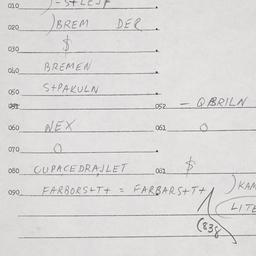 010
020 )BREM DER
030 $
040 BREMEN
050 S+PAKULN
051 052 — QBRILN
060 NEX 061 O
070 O
080 OUPACEDRAJLET 081 $
090 FARBORS+T+ = FARBARS+T+ )KAM
(LITE
(838